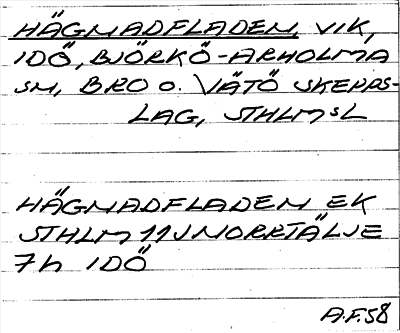 HÄGMADFLADEN VIK,
IDÖ, BJÖRKÖ-ARHOLMA
SN, BRO O. VÄTÖ SKEPPS-
LAG, STHLMSL
HÄGMADFLADEN EK
STHLM 11J NORRTÄLJE
7h IDÖ
A.F.58